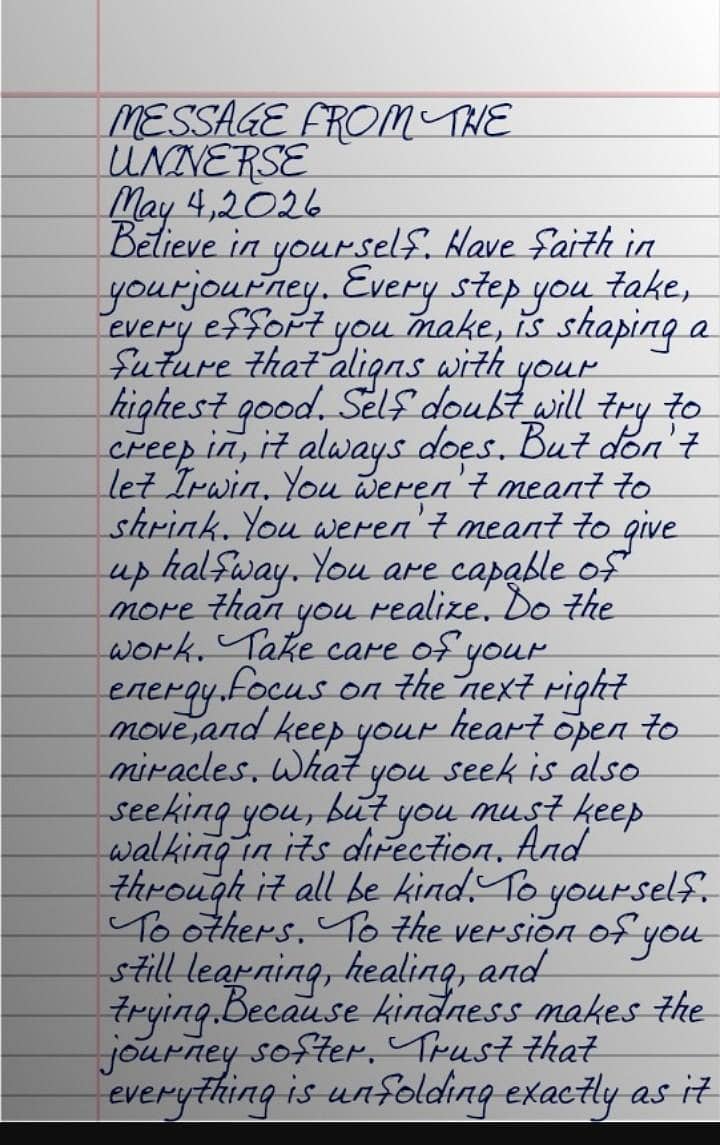 MESSAGE FROM THE
UNIVERSE
May 4,2026
Believe in yourself. Have faith in
yourjourney. Every step you take,
every effort you make, is shaping a
future that aligns with your
highest good. Self doubt will try to
creep in, it always does. But don't
let Irwin. You weren't meant to
shrink. You weren't meant to give
up halfway. You are capable of
more than you realize. Do the
work. Take care of your
energy.Focus on the next right
move,and keep your heart open to
miracles. What you seek is also
seeking you, but you must keep
walking in its direction. And
through it all be kind. To yourself.
To others. To the version of you
still learning, healing, and
trying.Because kindness makes the
journey softer. Trust that
everything is unfolding exactly as it